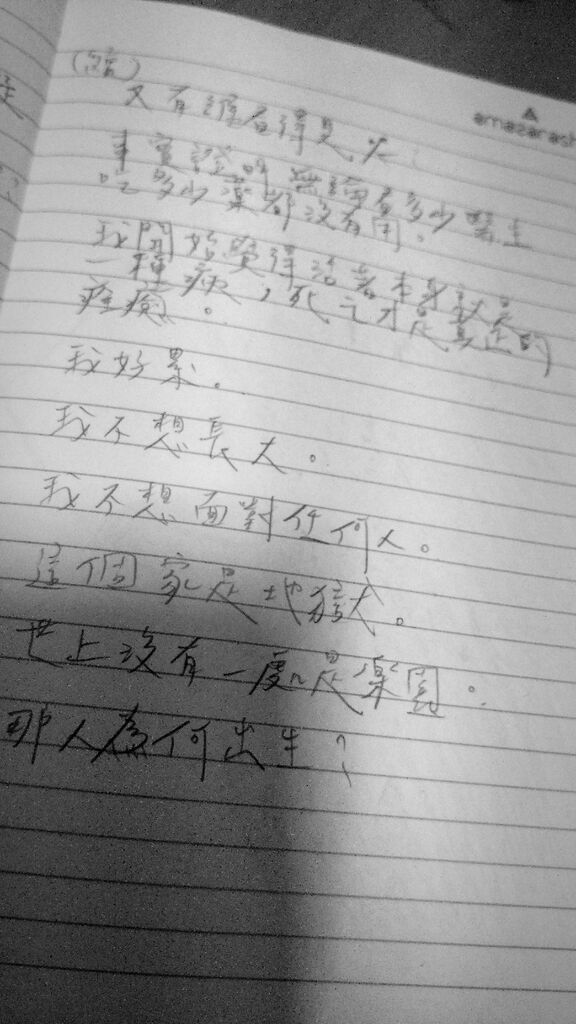 amazarashi
又有誰看得見
事實證明無論看多少醫生
吃多少藥都沒有用。
我開始覺得活著本身就是
一種病，死亡才是真正的
痊癒。
我好累。
我不想長大。
我不想面對任何人。
這個家是地獄。
世上沒有一處是樂園。
那人為何出生？